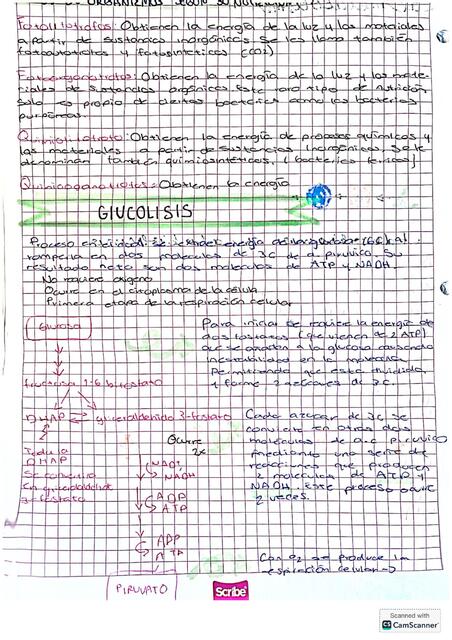 ORGANIZMOS SEGUN SU NUTRICION
Fotolitotrofos: Obtienen la energía de la luz y los materiales
a partir de sustancias inorgánicas. Se les llama también
fotoautotrofos y fotosintéticos (CO2)
Fotoorganotrofos: Obtienen la energía de la luz y los mate-
riales de sustancias orgánicas. Este raro tipo de nutrición
solo es propio de ciertas bacterias como las bacterias
purpúreas.
Quimiolitotrofo: Obtienen la energía de procesos químicos y
los materiales a partir de sustancias inorgánicas. Se le
denominan también quimiosintéticos. (bacterias férricas)
Quimioorganotrofos: Obtienen la energía
GLUCOLISIS
Proceso energía de la glucosa (6C) al
romperla en dos moleculas de 3C de a. piruvico. Su
resultado neto son dos moleculas de ATP y NADH
No requiere oxigeno
Ocurre en el citoplasma de la célula
Primera etapa de la respiración celular
Glucosa
Para iniciar se requiere la energía de
dos fosfatos (que vienen de 2 ATP)
que se a la glucosa causando
inestabilidad en la molecula
Permitiendo que esta dividida
y forme 2 azucares de 3C.
fructosa 1-6 bifosfato
DHAP gliceraldehido 3-fosfato
Cada azucar de 3C se
convierte en otras dos
moleculas de a.c piruvico
mediante una serie de
reacciones que producen
moleculas de ATP y
NADH. Este proceso ocurre
2 veces.
Ocurre
2x
Toda la
DHAP
Se convierte
en gliceraldehido
3-fosfato
NAD+
NADH
ADP
ATP
ADP
ATP
PIRUVATO
Con O2 se produce la
respiración celular →
Scribe
Scanned with
CS CamScanner